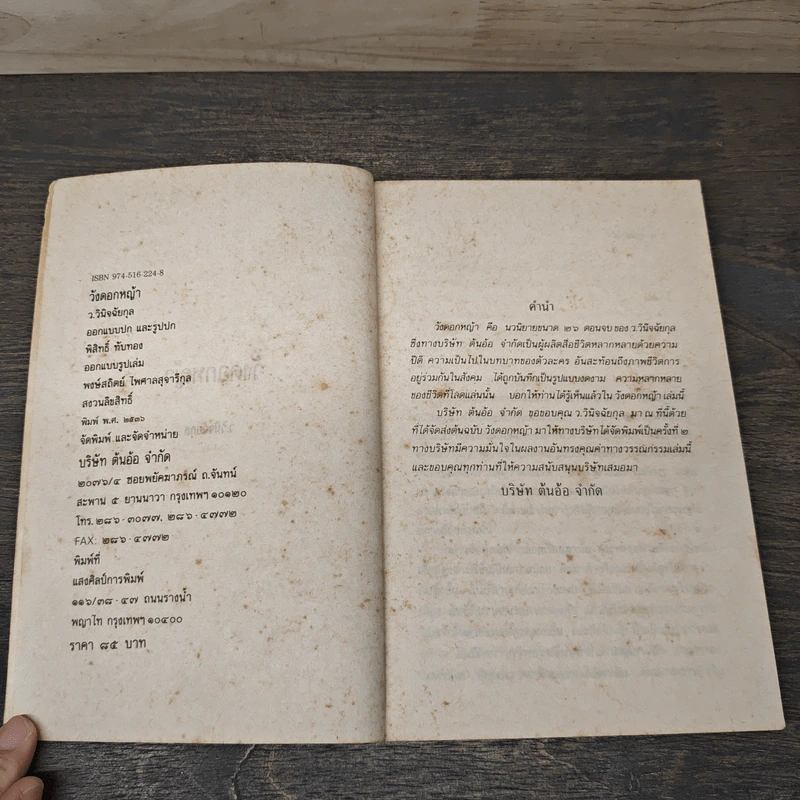 ISBN 974-516-224-8
วังดอกหญ้า
ว.วินิจฉัยกุล
ออกแบบปก และรูปปก
พิสิทธิ์ ทับทอง
ออกแบบรูปเล่ม
พงษ์สถิตย์ ไพศาลสุจารีกุล
สงวนลิขสิทธิ์
พิมพ์ พ.ศ. ๒๕๓๖
จัดพิมพ์ และจัดจำหน่าย
บริษัท ต้นอ้อ จำกัด
๒๐๗๖/๔ ซอยพยัคฆาภรณ์ ถ.จันทน์
สะพาน ๕ ยานนาวา กรุงเทพฯ ๑๐๑๒๐
โทร. ๒๘๖-๓๐๗๗, ๒๘๖-๔๗๗๒
FAX: ๒๘๖-๔๗๗๒
พิมพ์ที่
แสงศิลป์การพิมพ์
๑๑๖/๓๘-๔๗ ถนนรางน้ำ
พญาไท กรุงเทพฯ ๑๐๔๐๐
ราคา ๘๕ บาท
คำนำ
วังดอกหญ้า คือ นวนิยายขนาด ๒๖ ตอนจบ ของ ว.วินิจฉัยกุล
ซึ่งทางบริษัท ต้นอ้อ จำกัดเป็นผู้ผลิตสื่อชีวิตหลากหลายด้วยความ
ปิติ ความเป็นไปในบทบาทของตัวละคร อันสะท้อนถึงภาพชีวิตการ
อยู่ร่วมกันในสังคม ได้ถูกบันทึกเป็นรูปแบบงดงาม ความหลากหลาย
ของชีวิตที่โลดแล่นนั้น บอกให้ท่านได้รู้เห็นแล้วใน วังดอกหญ้า เล่มนี้
บริษัท ต้นอ้อ จำกัด ขอขอบคุณ ว.วินิจฉัยกุล มา ณ ที่นี้ด้วย
ที่ได้จัดส่งต้นฉบับ วังดอกหญ้า มาให้ทางบริษัทได้จัดพิมพ์เป็นครั้งที่ ๒
ทางบริษัทมีความมั่นใจในผลงานอันทรงคุณค่าทางวรรณกรรมเล่มนี้
และขอบคุณทุกท่านที่ให้ความสนับสนุนบริษัทเสมอมา
บริษัท ต้นอ้อ จำกัด